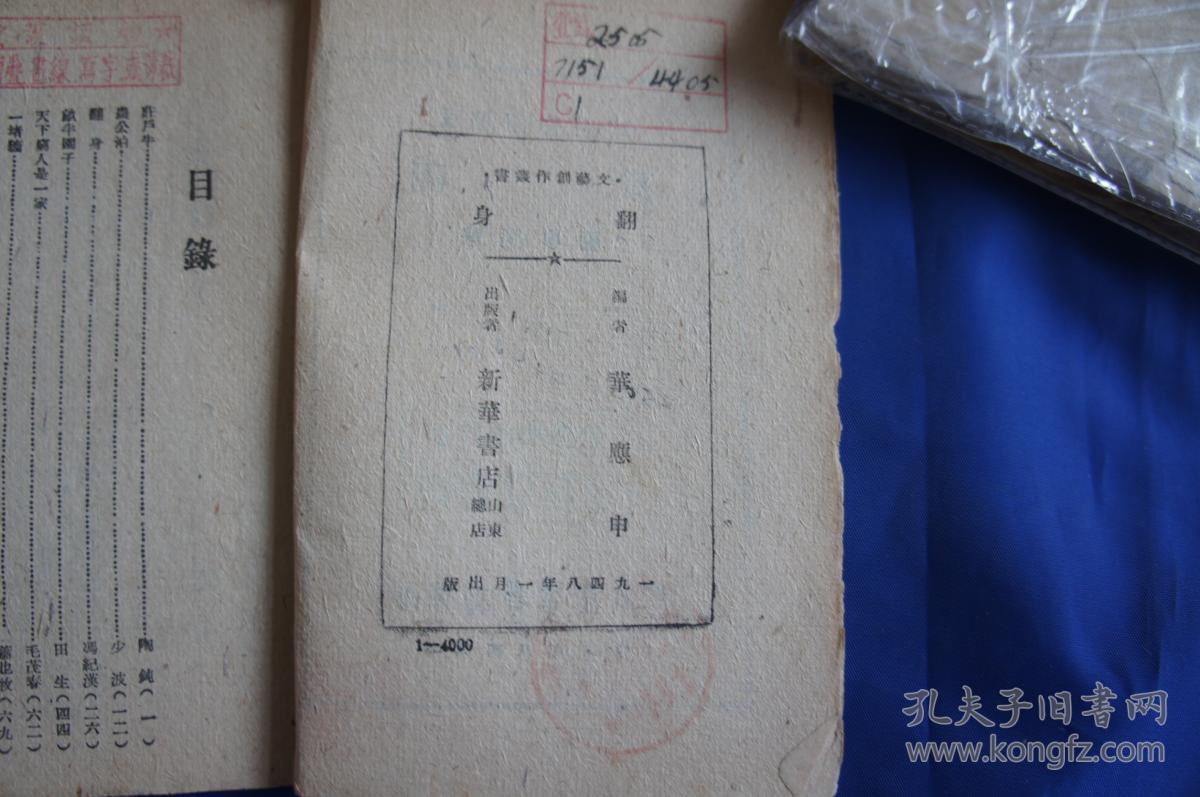 2505
7151 / 4405
C1
·文藝創作叢書·
翻身
編者 華應申
出版者 新華書店 山東總店
一九四八年一月出版
1—4000
目錄
莊戶牛 陶鈍(一)
農公泊 少波(一二)
翻身 馮紀漢(二六)
田生(四四)
天下窮人是一家 毛茂春(六二)
一堵牆 (六九)
孔夫子旧书网
www.kongfz.com